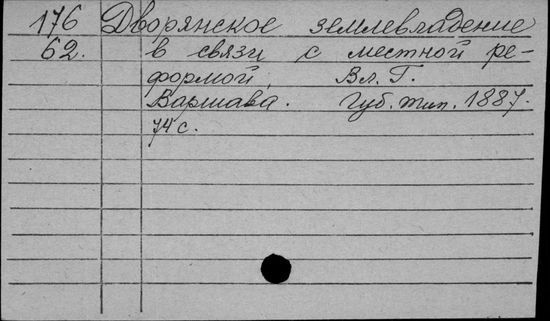 176 Дворянское землевладение
62. в связи с местной ре-
формой. Вл. Г.
Варшава. Губ. тип. 1887.
74 с.